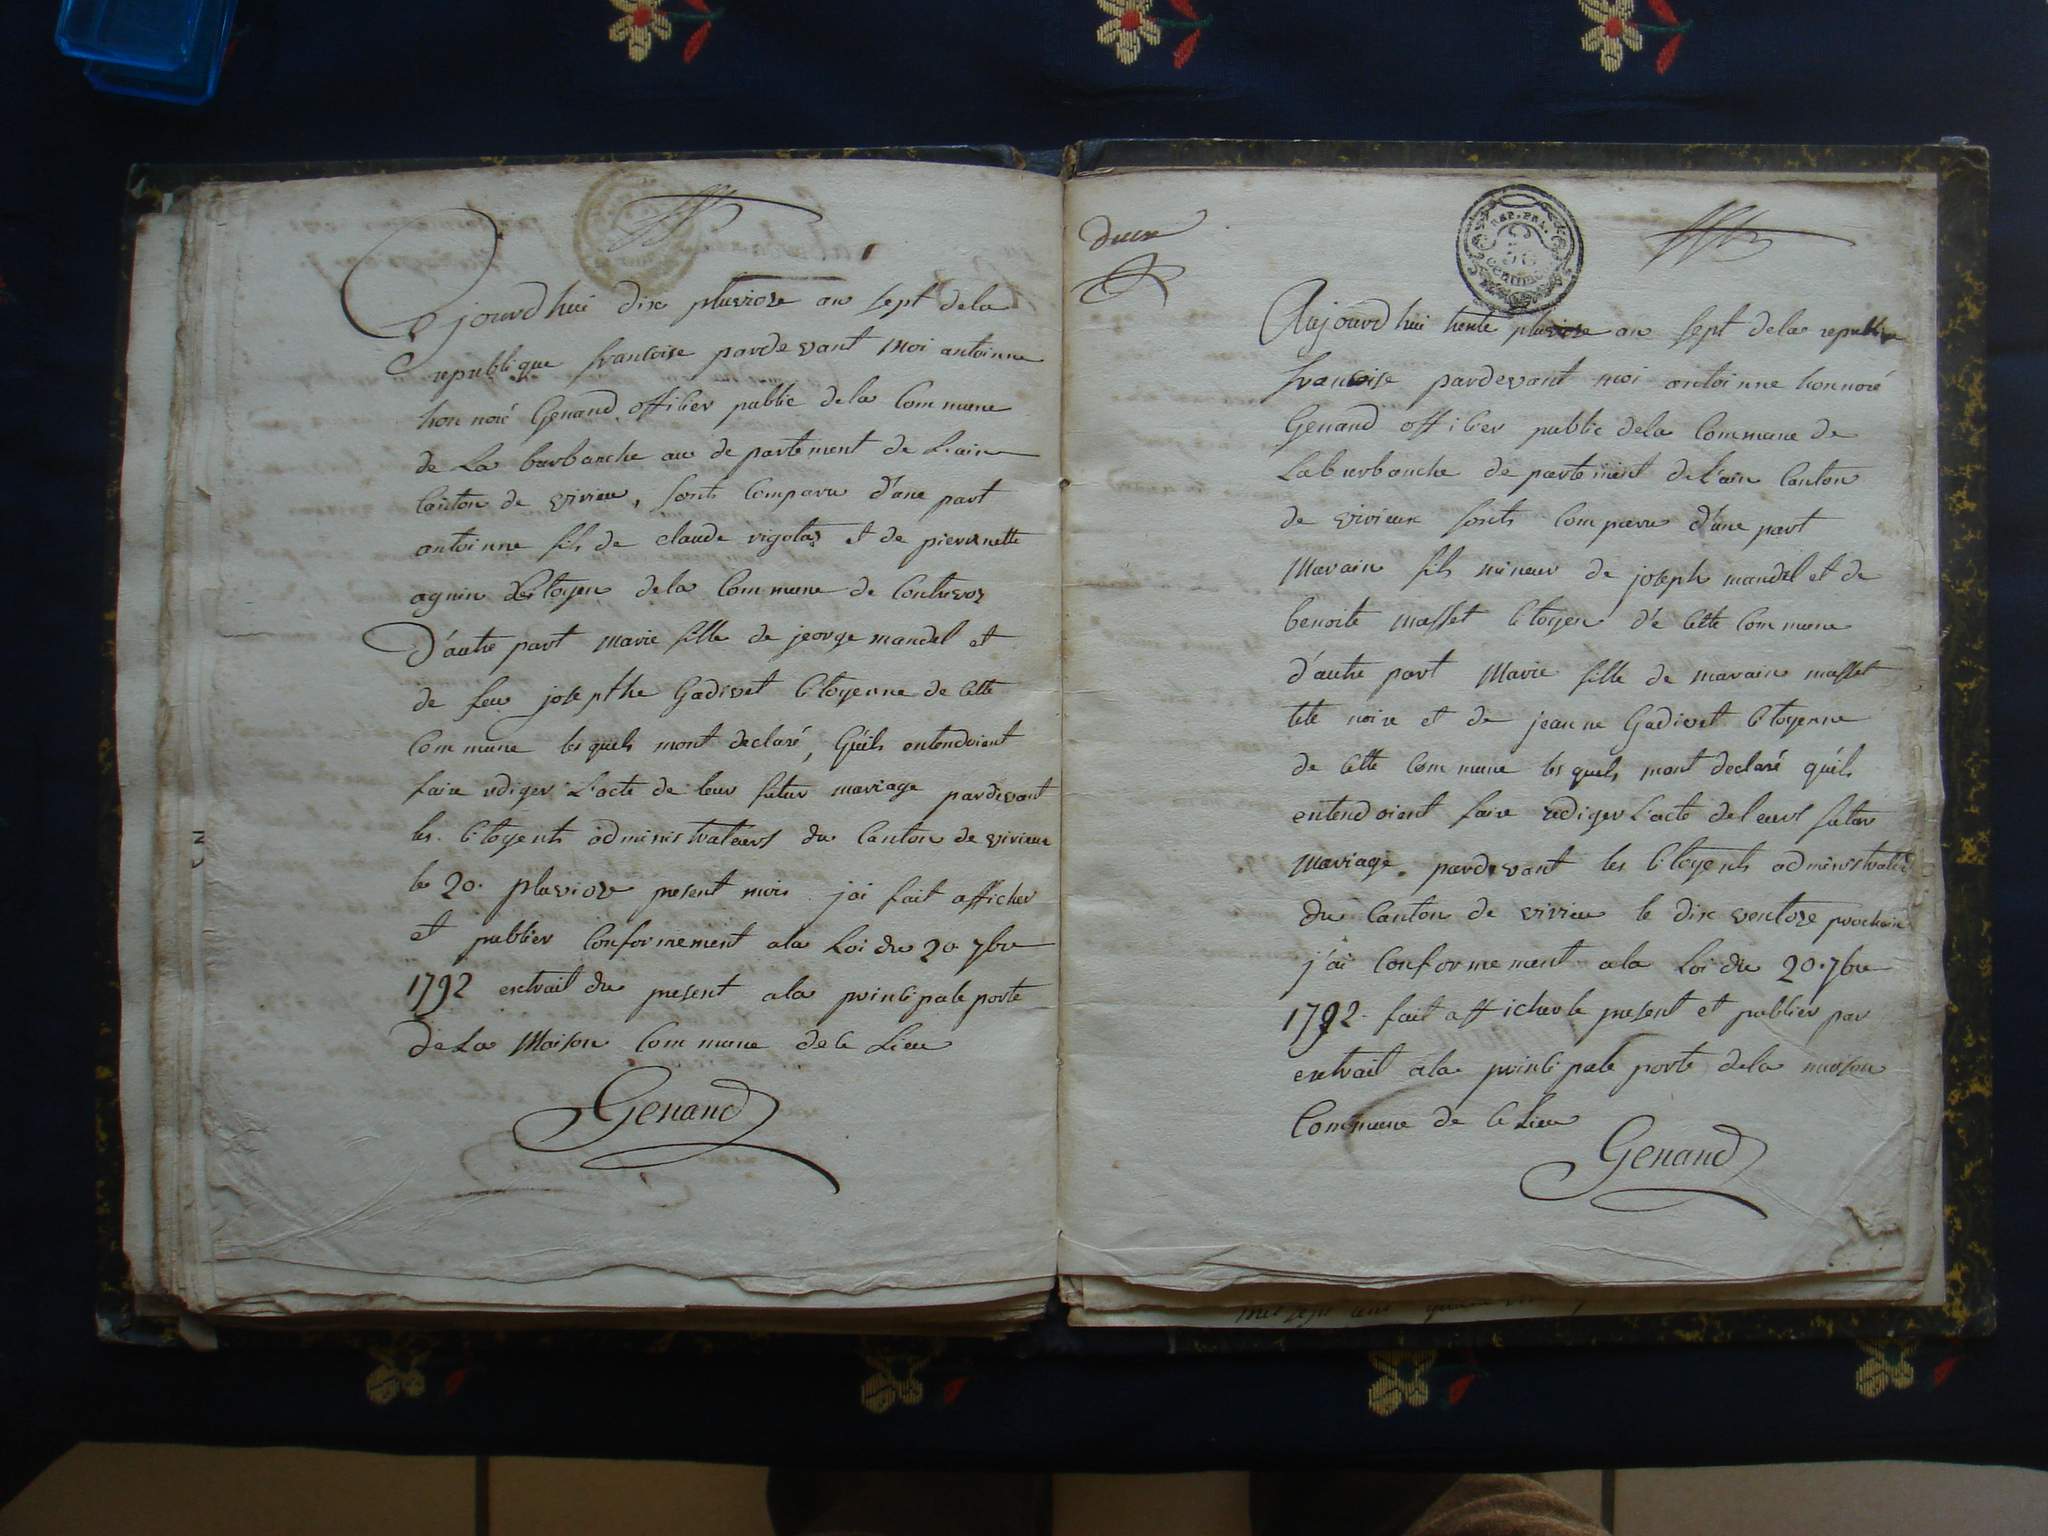 jourdhui dix pluviose an sept dela
republique francoise pardevant moi antoinne
honnoré Genand officier public dela Commune
de La burbanche au departement de L'ain
Canton de virieu, sonts Comparu d'une part
antoinne fils de claude vigolaz et de pierrenette
agnin Citoyen dela Commune de Contrevoz
D'autre part marie fille de jeorge mandel et
de feu josepthe Gadivet Citoyenne de Cette
Commune les quels mont declaré, Quils entendoient
faire rediger L'acte de leur futur mariage pardevant
les Citoyents administrateurs du Canton de virieux
le 20. pluvioze present mois j'ai fait afficher
et publier Conformement ala Loi du 20 7bre
1792 extrait du present ala principale porte
de La Maison Commune de ce Lieu
Genand
REP. FRA.
50
centime
Aujourdhui trente pluviose an sept dela republi
francoise pardevant moi antoinne honnoré
Genand officier public dela Commune de
Laburbanche departement de L'ain Canton
de virieux sonts Comparu d'une part
Marain fils mineur de joseph mandel et de
benoite masset Citoyen dé Cette Commune
d'autre part Marie fille de marain masset
tete noire et de jeanne Gadivet Citoyenne
de Cette Commune les quels mont declaré quils
entendoient faire rediger L'acte deleurs futur
mariage. pardevant les Citoyents administrate
du Canton de virieu le dix ventoze prochain
j'ai Conformement ala Loi du 20. 7bre
1792. fait afficher le present et publier par
extrait ala principale porte dela maison
Commune de ce Lieu
Genand